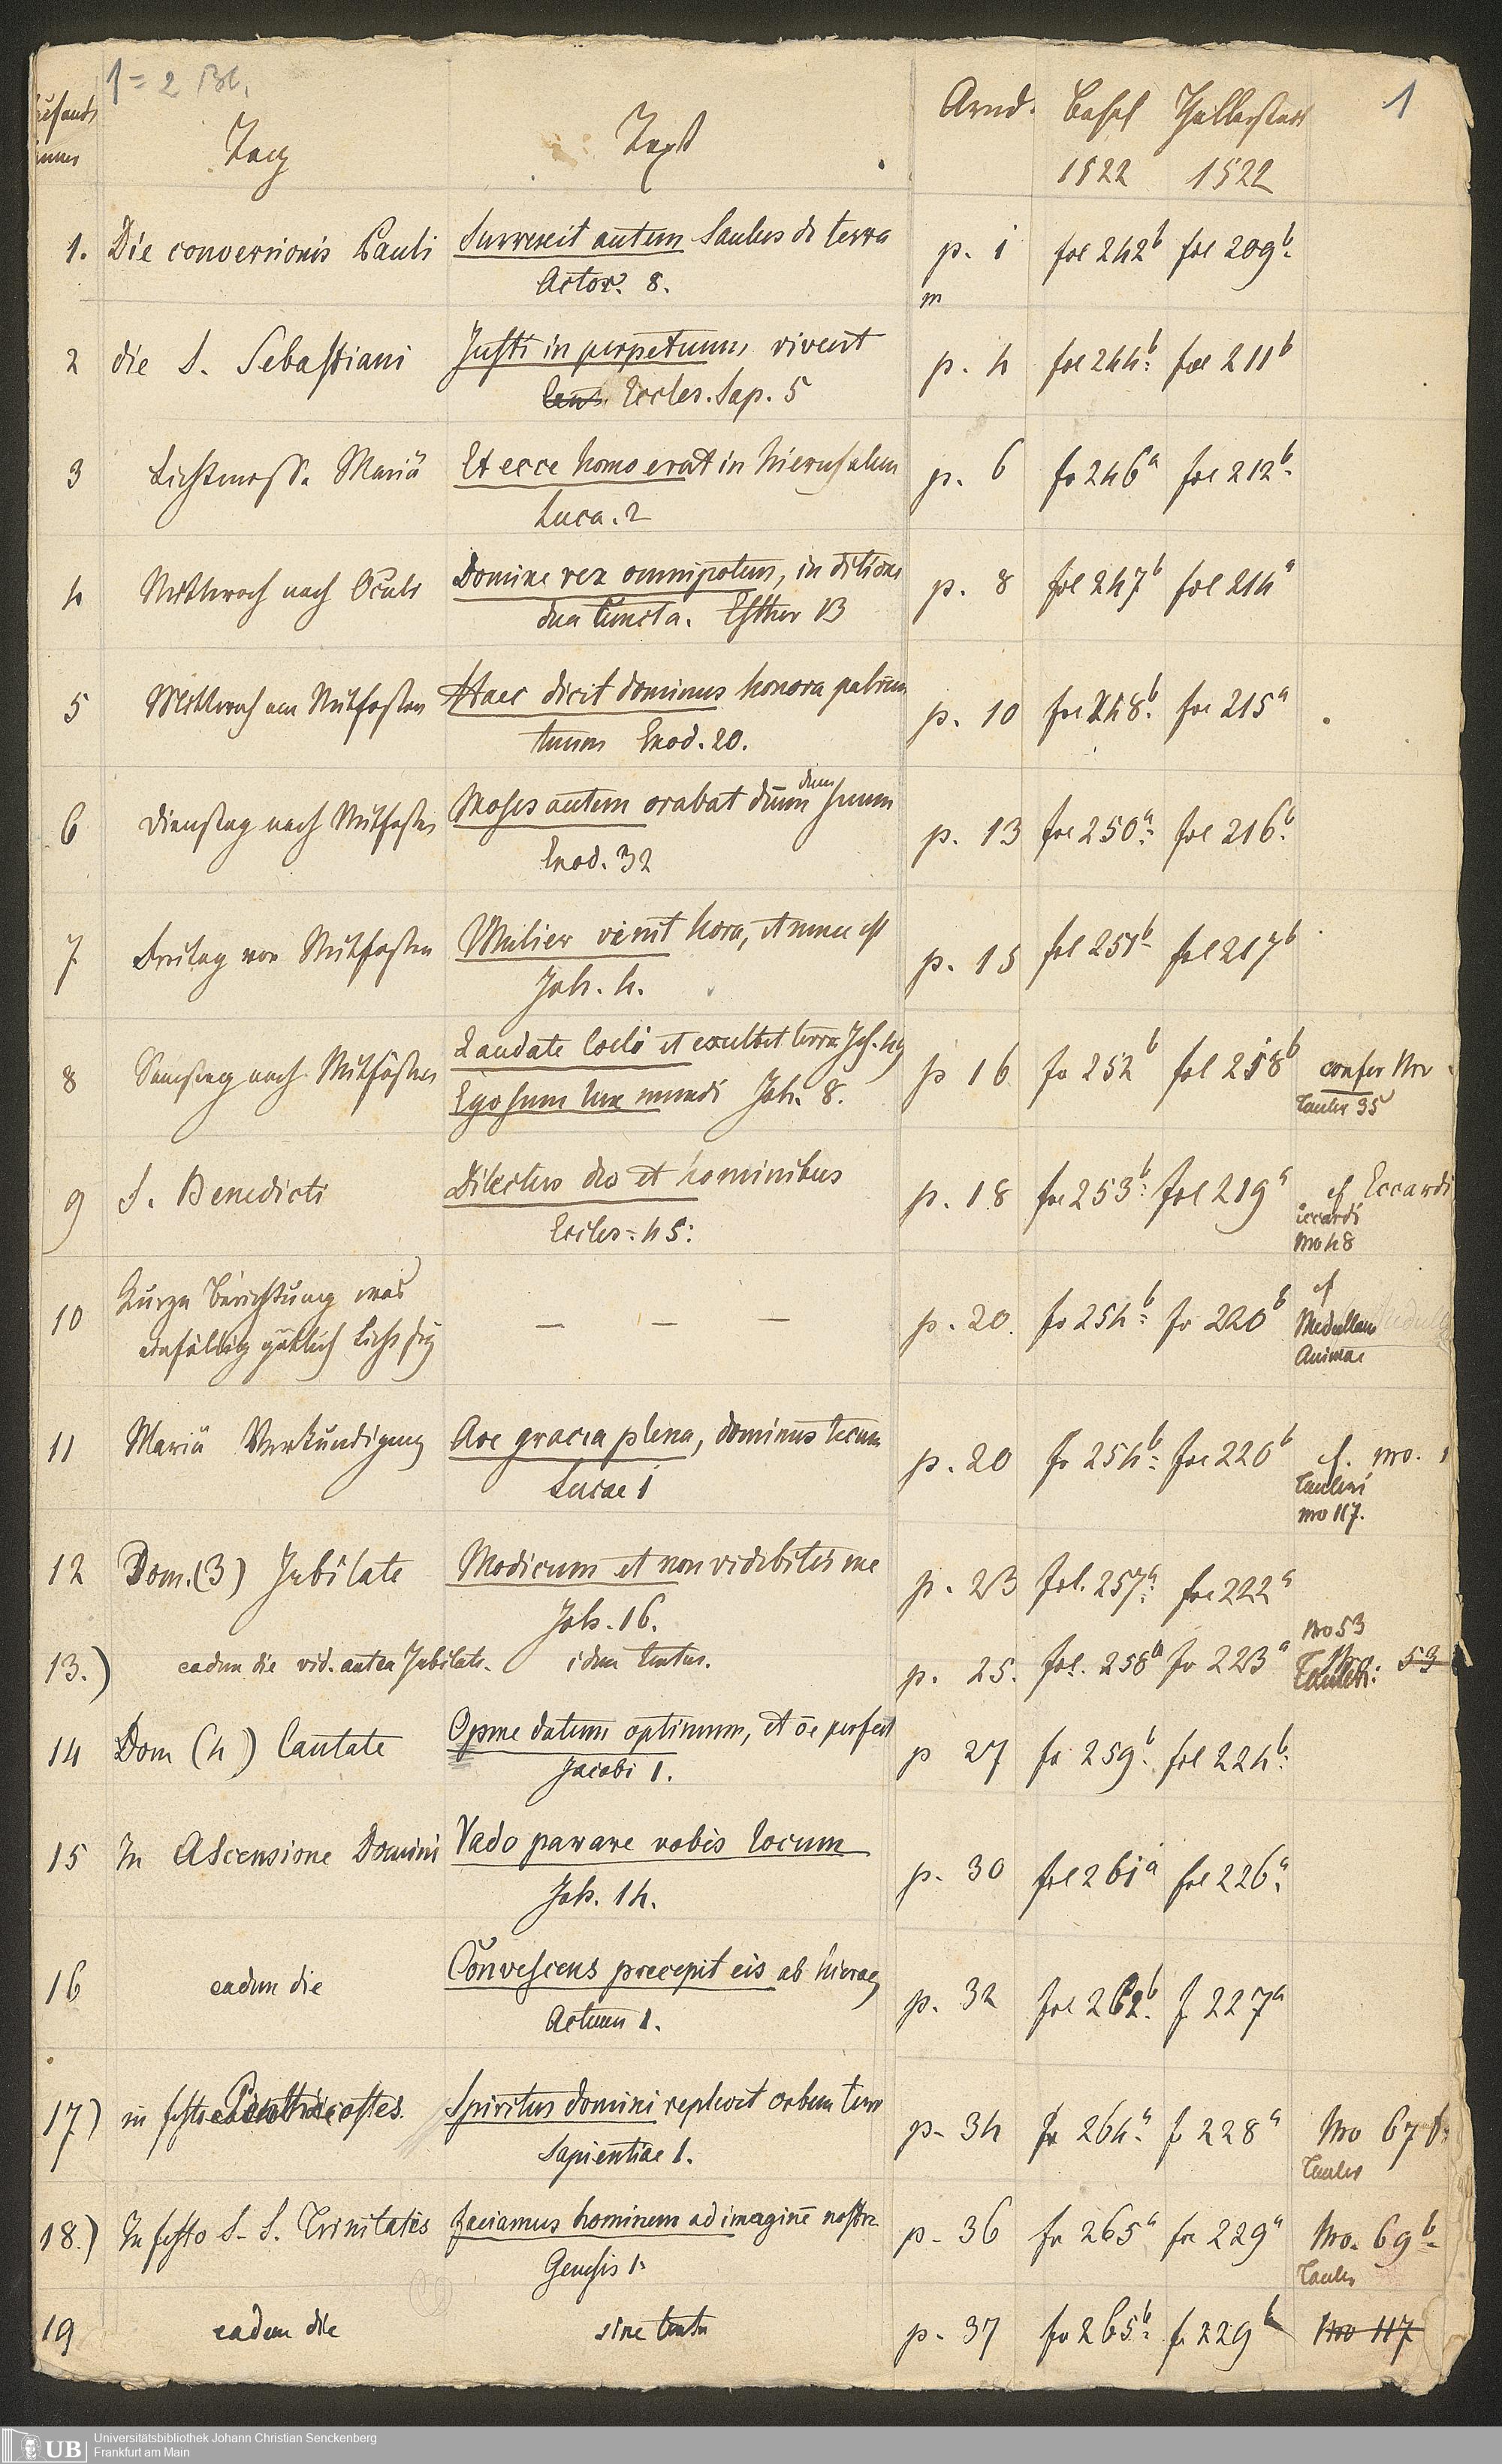 1 = 2 Bl.
1
Tag Text Arnd. Basel Halberstadt
1522 1522
1. Die conversionis Pauli Surrexit autem Saulus de terra p. 1 fol 242b fol 209b
Actor. 8.
m
2 die S. Sebastiani Justi in perpetuum vivent p. 4 fol 244b fol 211b
Eccles. Sap. 5
3 Lichtmesse Mariä Et ecce homo erat in Hierusalem p. 6 fo 246a fol 212b
Luca. 2
4 Mittwoch nach Oculi Domine rex omnipotens, in ditione p. 8 fol 247b fol 214a
tua cuncta. Esther 13
5 Mittwoch vor Mitfasten Haec dicit dominus honora patrem p. 10 fol 248b fol 215a
tuum Exod. 20.
6 Dienstag nach Mitfasten Moses autem orabat dum deum suum p. 13 fol 250a fol 216b
Exod. 32
7. Freitag vor Mitfasten Mulier venit hora, et nunc est p. 15 fol 251b fol 217b
Joh. 4.
8 Samstag nach Mitfasten Laudate Coeli et exultet terra Jes. 49 p 16 fo 252b fol 218b confer Nro
Ego sum lux mundi Joh. 8. Tauler 35
9 S. Benedicti Dilectus deo et hominibus p. 18 fol 253b fol 219a cf Eccardi
Eccles. 45. iccardi
nro 48
10 Kurze Berichtung was — — — p. 20. fo 254b fo 220b cf
einfältig götlich Licht sig Medullam
Animae
11 Mariä Verkündigung Ave gracia plena, dominus tecum p. 20 fo 254b fol 220b cf. nro. 1
Lucae 1 Tauleri
nro 117.
12 Dom. (3) Jubilate Modicum et non videbitis me p. 23 fol. 257a fol 222a
Joh. 16.
13.) eadem die vid. antea Jubilate. idem textus. p. 25. fol. 258b fo 223a nro 53
Tauleri: 53
14 Dom (4) Cantate Opme datum optimum, et oe perfect p 27 fo 259b fol 224b
Jacobi 1.
15 In Ascensione Domini Vado parare vobis locum p. 30 fol 261a fol 226a
Joh. 14.
16 eadem die Convescens precepit eis ab hieros p. 32 fol 262b f 227a
Actuum 1.
17) in festo Penthecostes. Spiritus domini replevit orbem terr p. 34 fo 264a f 228a Nro 67
Sapientiae 1. Tauler
18.) In festo S. S. Trinitatis Faciamus hominem ad imaginē nostra p. 36 fo 265a fo 229a Nro. 69b
Genesis 1. Tauler
19 eadem die sine textu p. 37 fo 265b f 229b Nro 117
UB Universitätsbibliothek Johann Christian Senckenberg
Frankfurt am Main